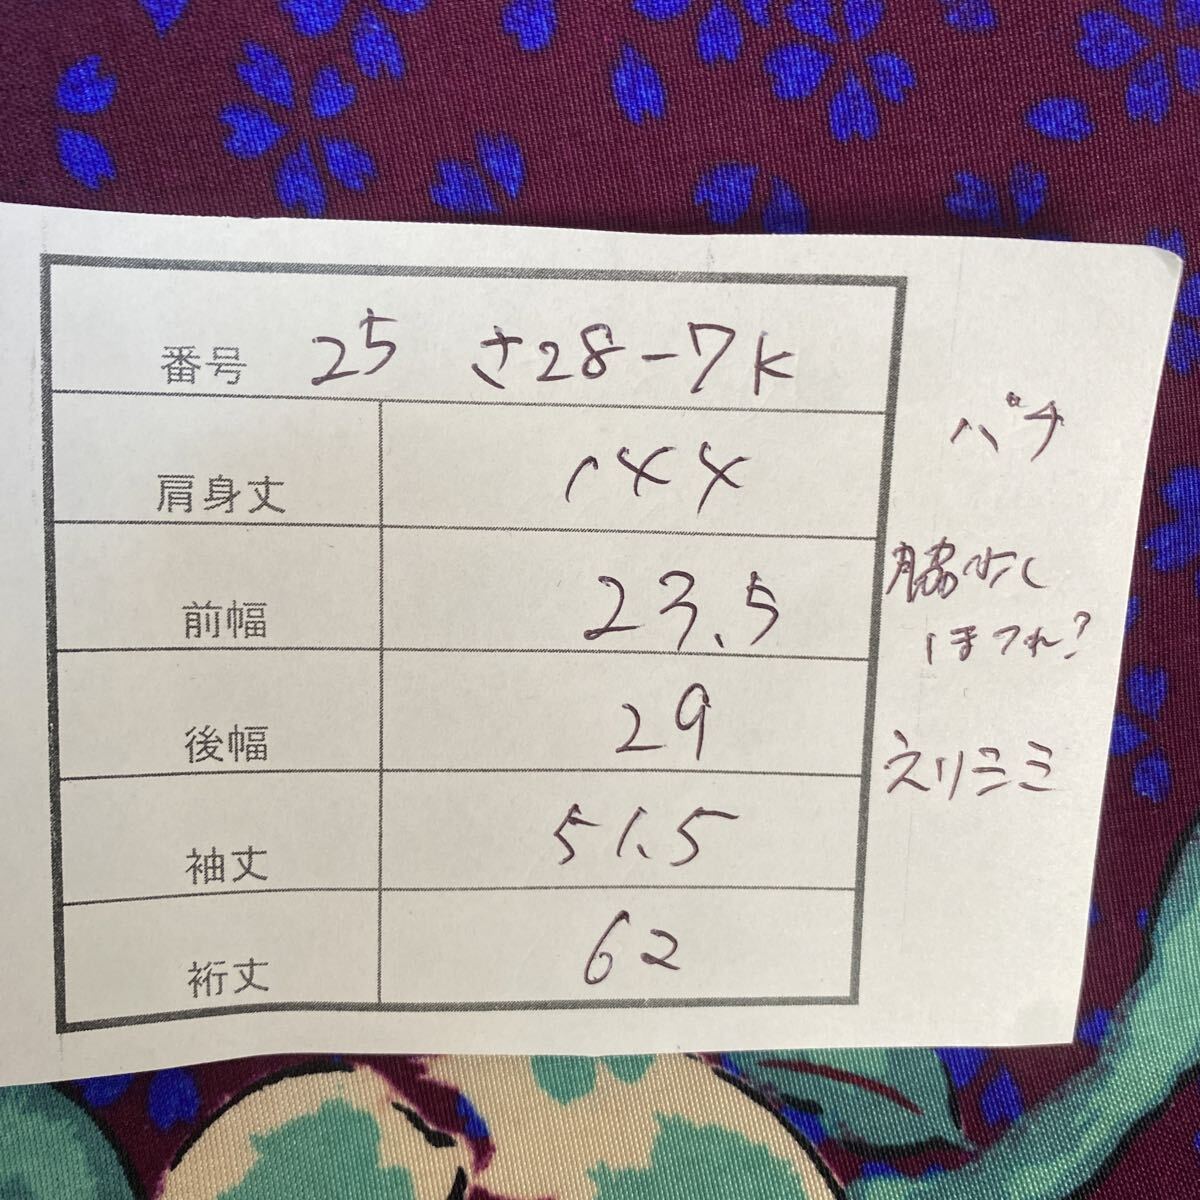 番号 25 さ28-7K
肩身丈 144
前幅 23.5
後幅 29
袖丈 51.5
裄丈 62
バチ
脇少し
ほつれ?
えりシミ